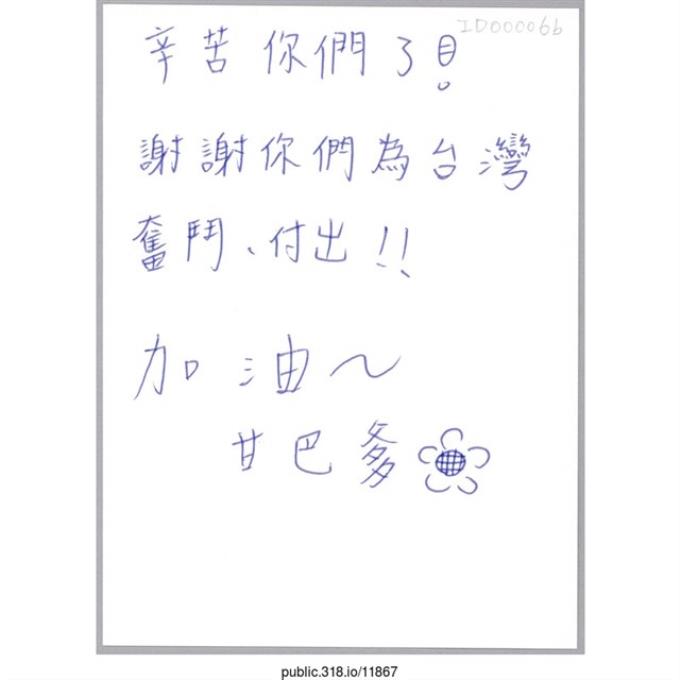 ID000066
辛苦你們了!
謝謝你們為台灣
奮鬥、付出!!
加油~
甘巴爹
public.318.io/11867